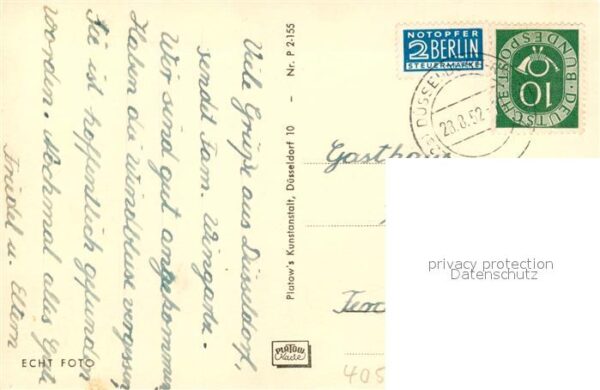 Viele Grüße aus Düsseldorf,
sendet Fam. Wingartz.
Wir sind gut angekommen
Haben die Windbluse vergessen
Sie ist hoffentlich gefunden
worden. Nochmal alles Gute
Friedel u. Eltern
ECHT FOTO
Platow's Kunstanstalt, Düsseldorf 10 – Nr. P 2-155
PLATOW
Karte
NOTOPFER
2 BERLIN
STEUERMARKE
DÜSSELDORF
23.8.52
DEUTSCHE BUNDESPOST
10
Gasthaus
405
privacy protection
Datenschutz